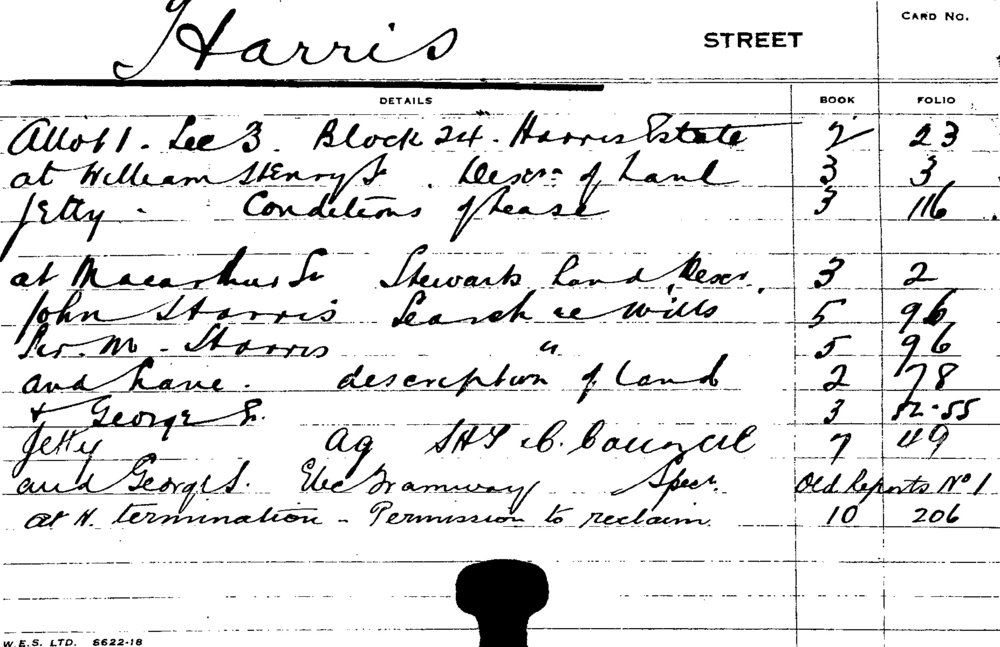 CARD NO.
Harris STREET
DETAILS BOOK FOLIO
Allot 1. Sec 3. Block 24. Harris Estate 2 23
at William Henry St. Descn of Land 3 3
Jetty - Conditions of Lease 3 116
at Macarthur St Stewarts Land Descr. 3 2
John Harris Search re Wills 5 96
M. Harris " 5 96
and Lane. description of land 2 78
+ George St. 3 52-55
Jetty Ag C. Council 7 119
and George S. Elec Tramway Specn. Old Reports No 1
at N. termination - Permission to reclaim 10 206
W.E.S. LTD. S622-18